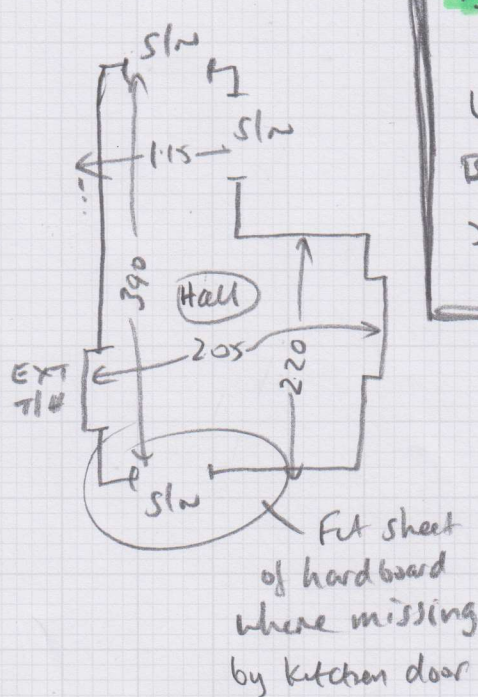 S/N
S/N
1.15
390
Hall
205
220
EXT
T/H
S/N
Fit sheet
of hardboard
where missing
by kitchen door